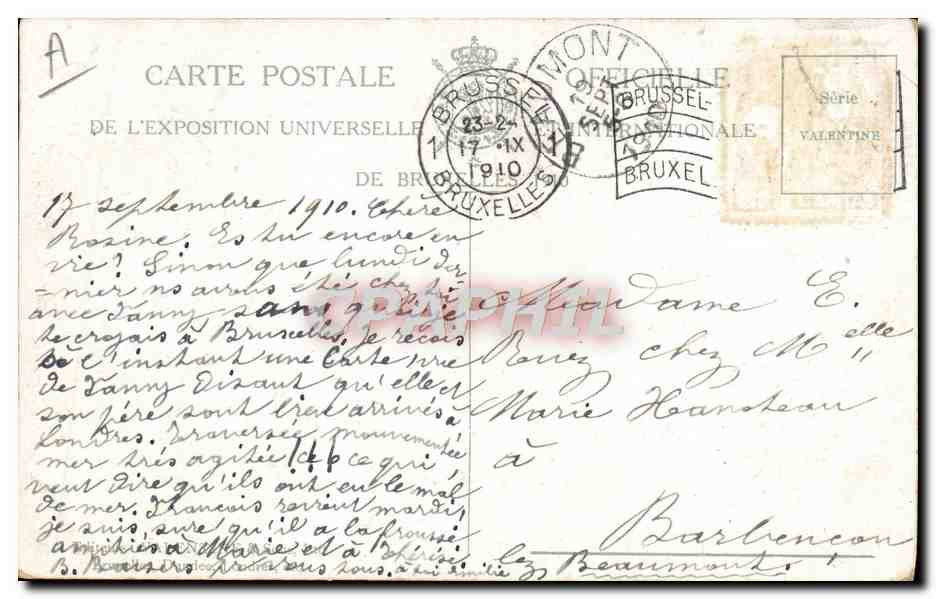 A
CARTE POSTALE OFFICIELLE
DE L'EXPOSITION UNIVERSELLE ET INTERNATIONALE
DE BRUXELLES
BRUSSEL
23-2
17 IX
1910
1 1
BRUXELLES
MONT
19
SEPT
1910
BRUSSEL-
BRUXEL
Série
VALENTINE
17 septembre 1910. Chère
Rosine. Es tu encore en
vie? Sinon que lundi der-
-nier ns avons été chez toi
avec Fanny sans je
te croyais à Bruxelles, je reçois
à l'instant une Carte vue
de Fanny Disant qu'elle et
son père sont bien arrivés à
Londres. Traversée mouvementée
mer très agitée!!! ce qui
veut dire qu'ils ont eu le mal
de mer. François revient mardi,
je suis sure qu'il a la frousse
amitiés à Marie et à Thérèse
B. Baisers pr vous tous. à toi Emilie
Madame E.
chez Melle
Marie Hanoteau
à
Barbençon
lez Beaumont.
CPAPHIL